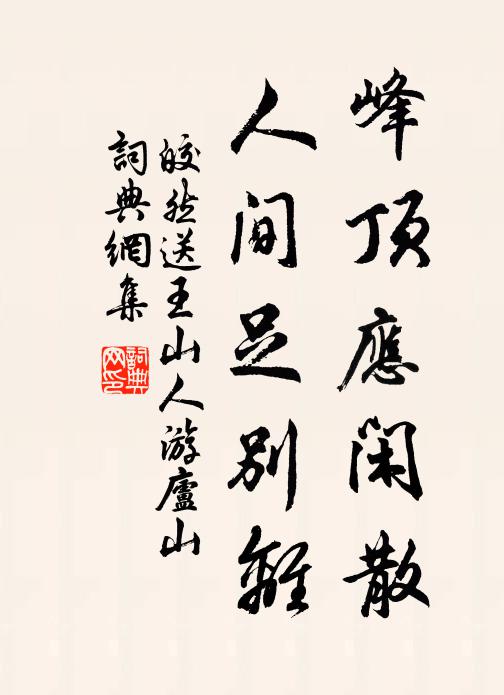 峰頂應閑散
人間足別離
皎然送王山人游廬山
詞典網集
詞典
网印